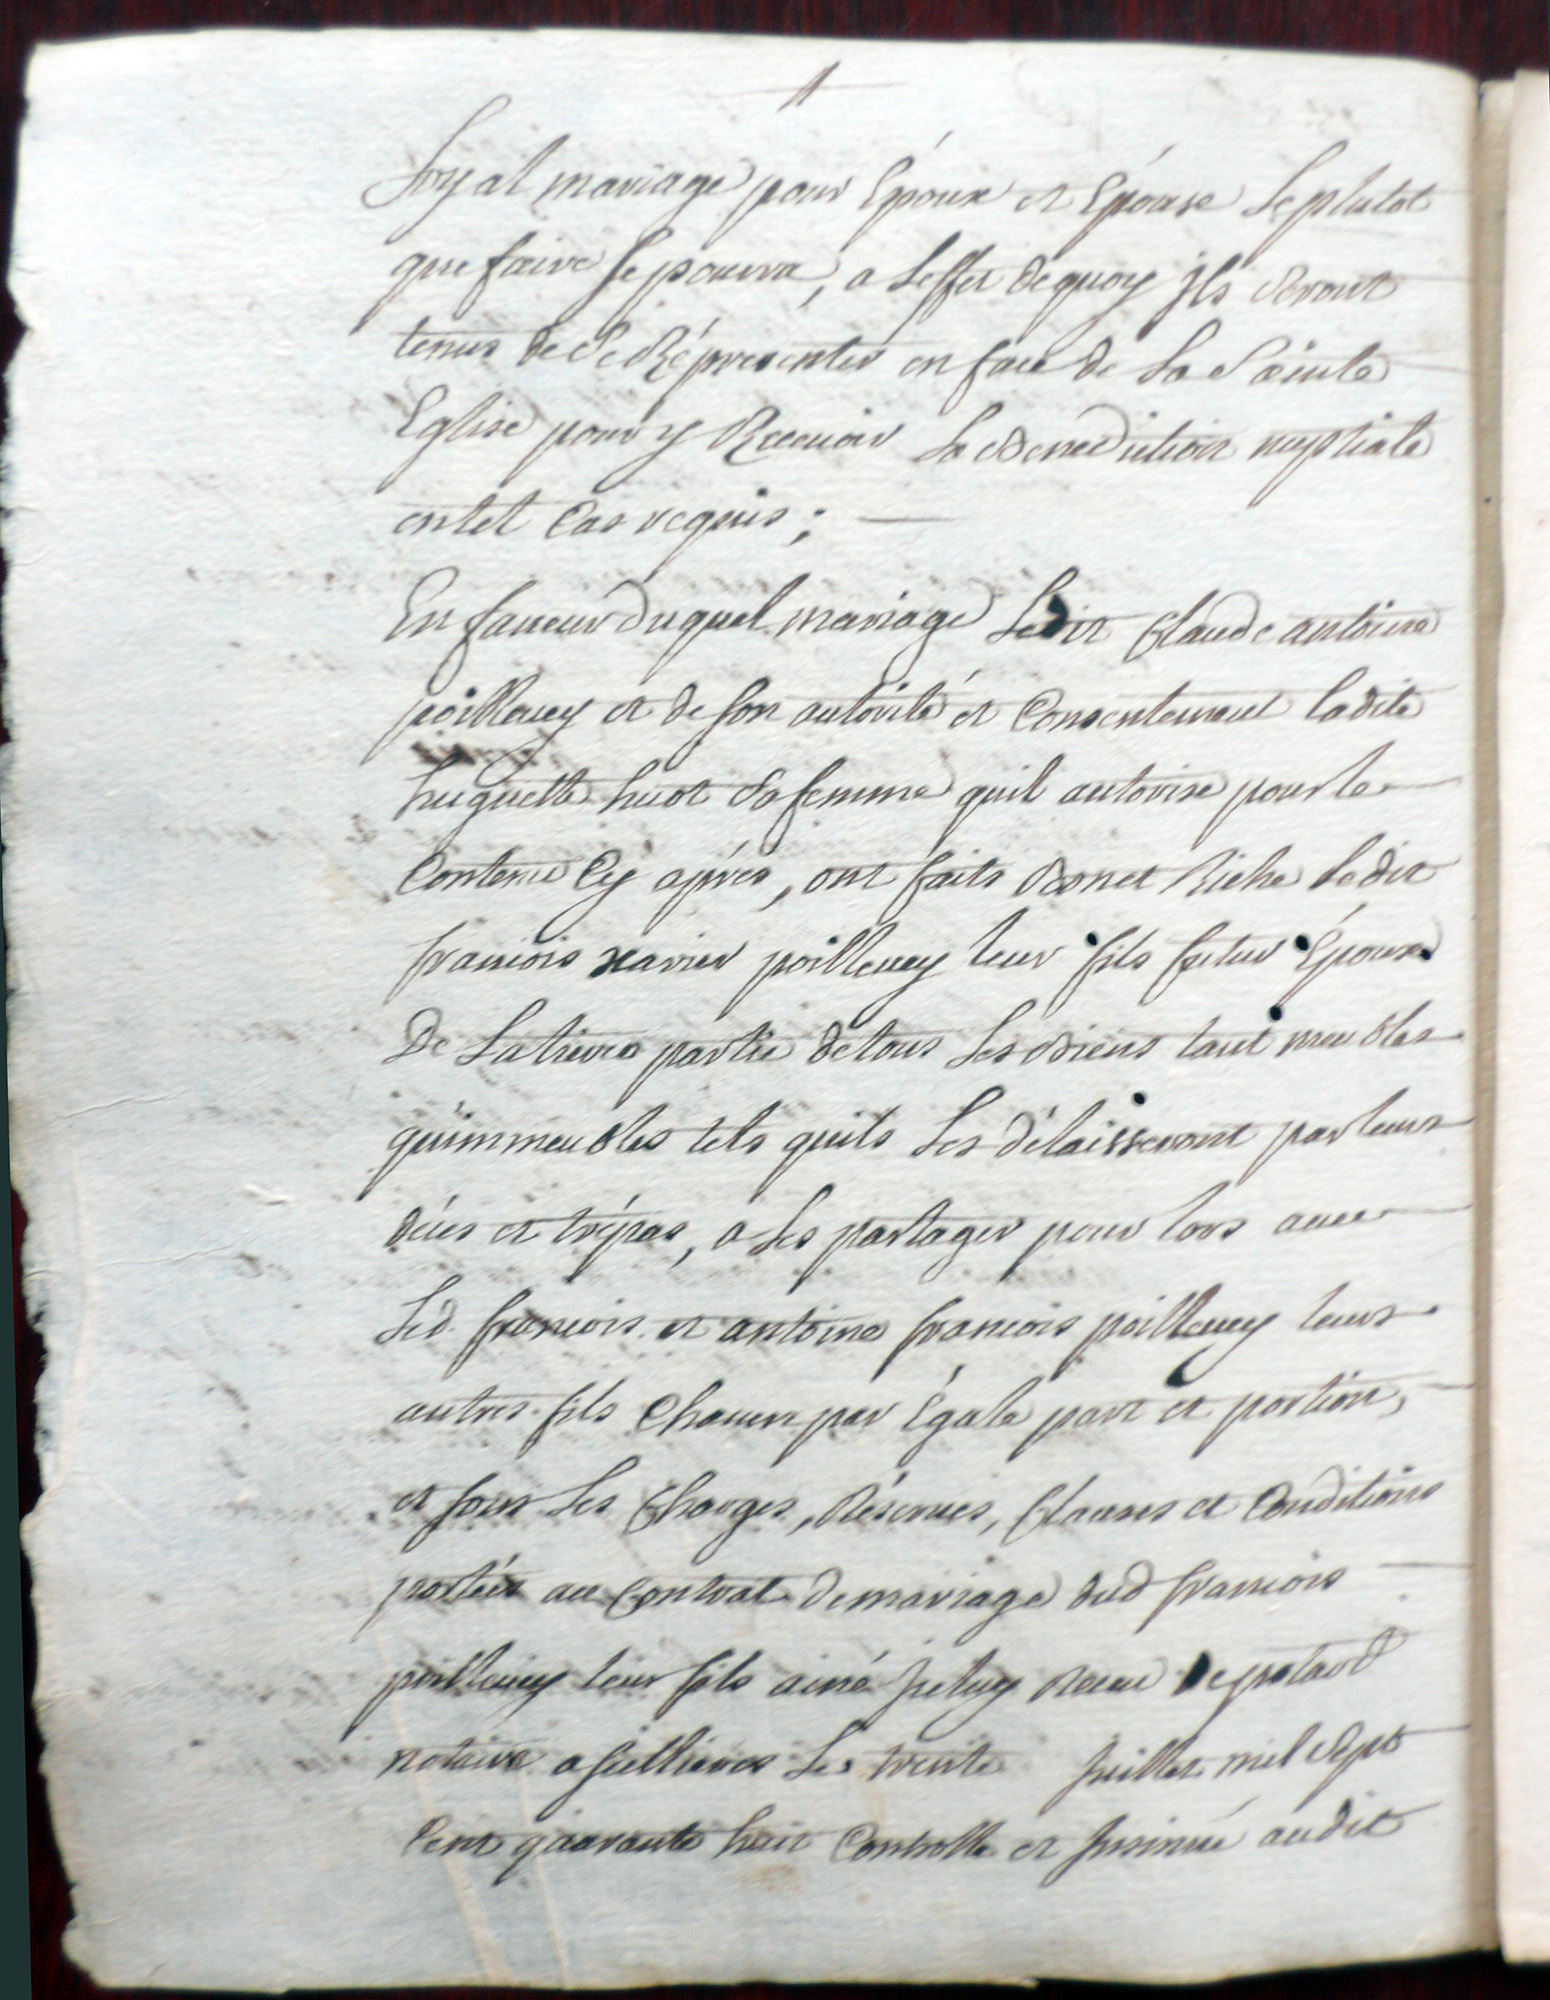 Loyal mariage pour Epoux et Epouse Leplutot
que faire Se pourra, a Leffet dequoy Ils Seront
tenus de Se Réprésenter en face de La Sainte
Eglise pour y Recevoir La Benediction nuptiale
entel Cas requis ; —
En faueur duquel mariage Ledit Claude antoine
poilleuey et de son autorité et Consentement ladite
huguette huot Sa femme quil autorise pour le
Contenu Cy aprés, ont faits Bon et Riche ledit
francois xavier poilleuey leur fils futur Epoux
De La tierce partie de tous Les Biens tant meubles
qu'immeubles tels quils Les délaisseront par leurs
déces et trépas, a Les partager pour lors auec
Led. francois et antoine francois poilleuey leurs
autres fils Chacun par Egale part et portion,
et sous Les Charges, Réserues, Clauses et Conditions
portées au Contrat de mariage dud francois
poilleuey leur fils ainé Iceluy Receu De
notaire a Le trente Juillet mil Sept
Cent quarante huit Controllé et Insinué audit